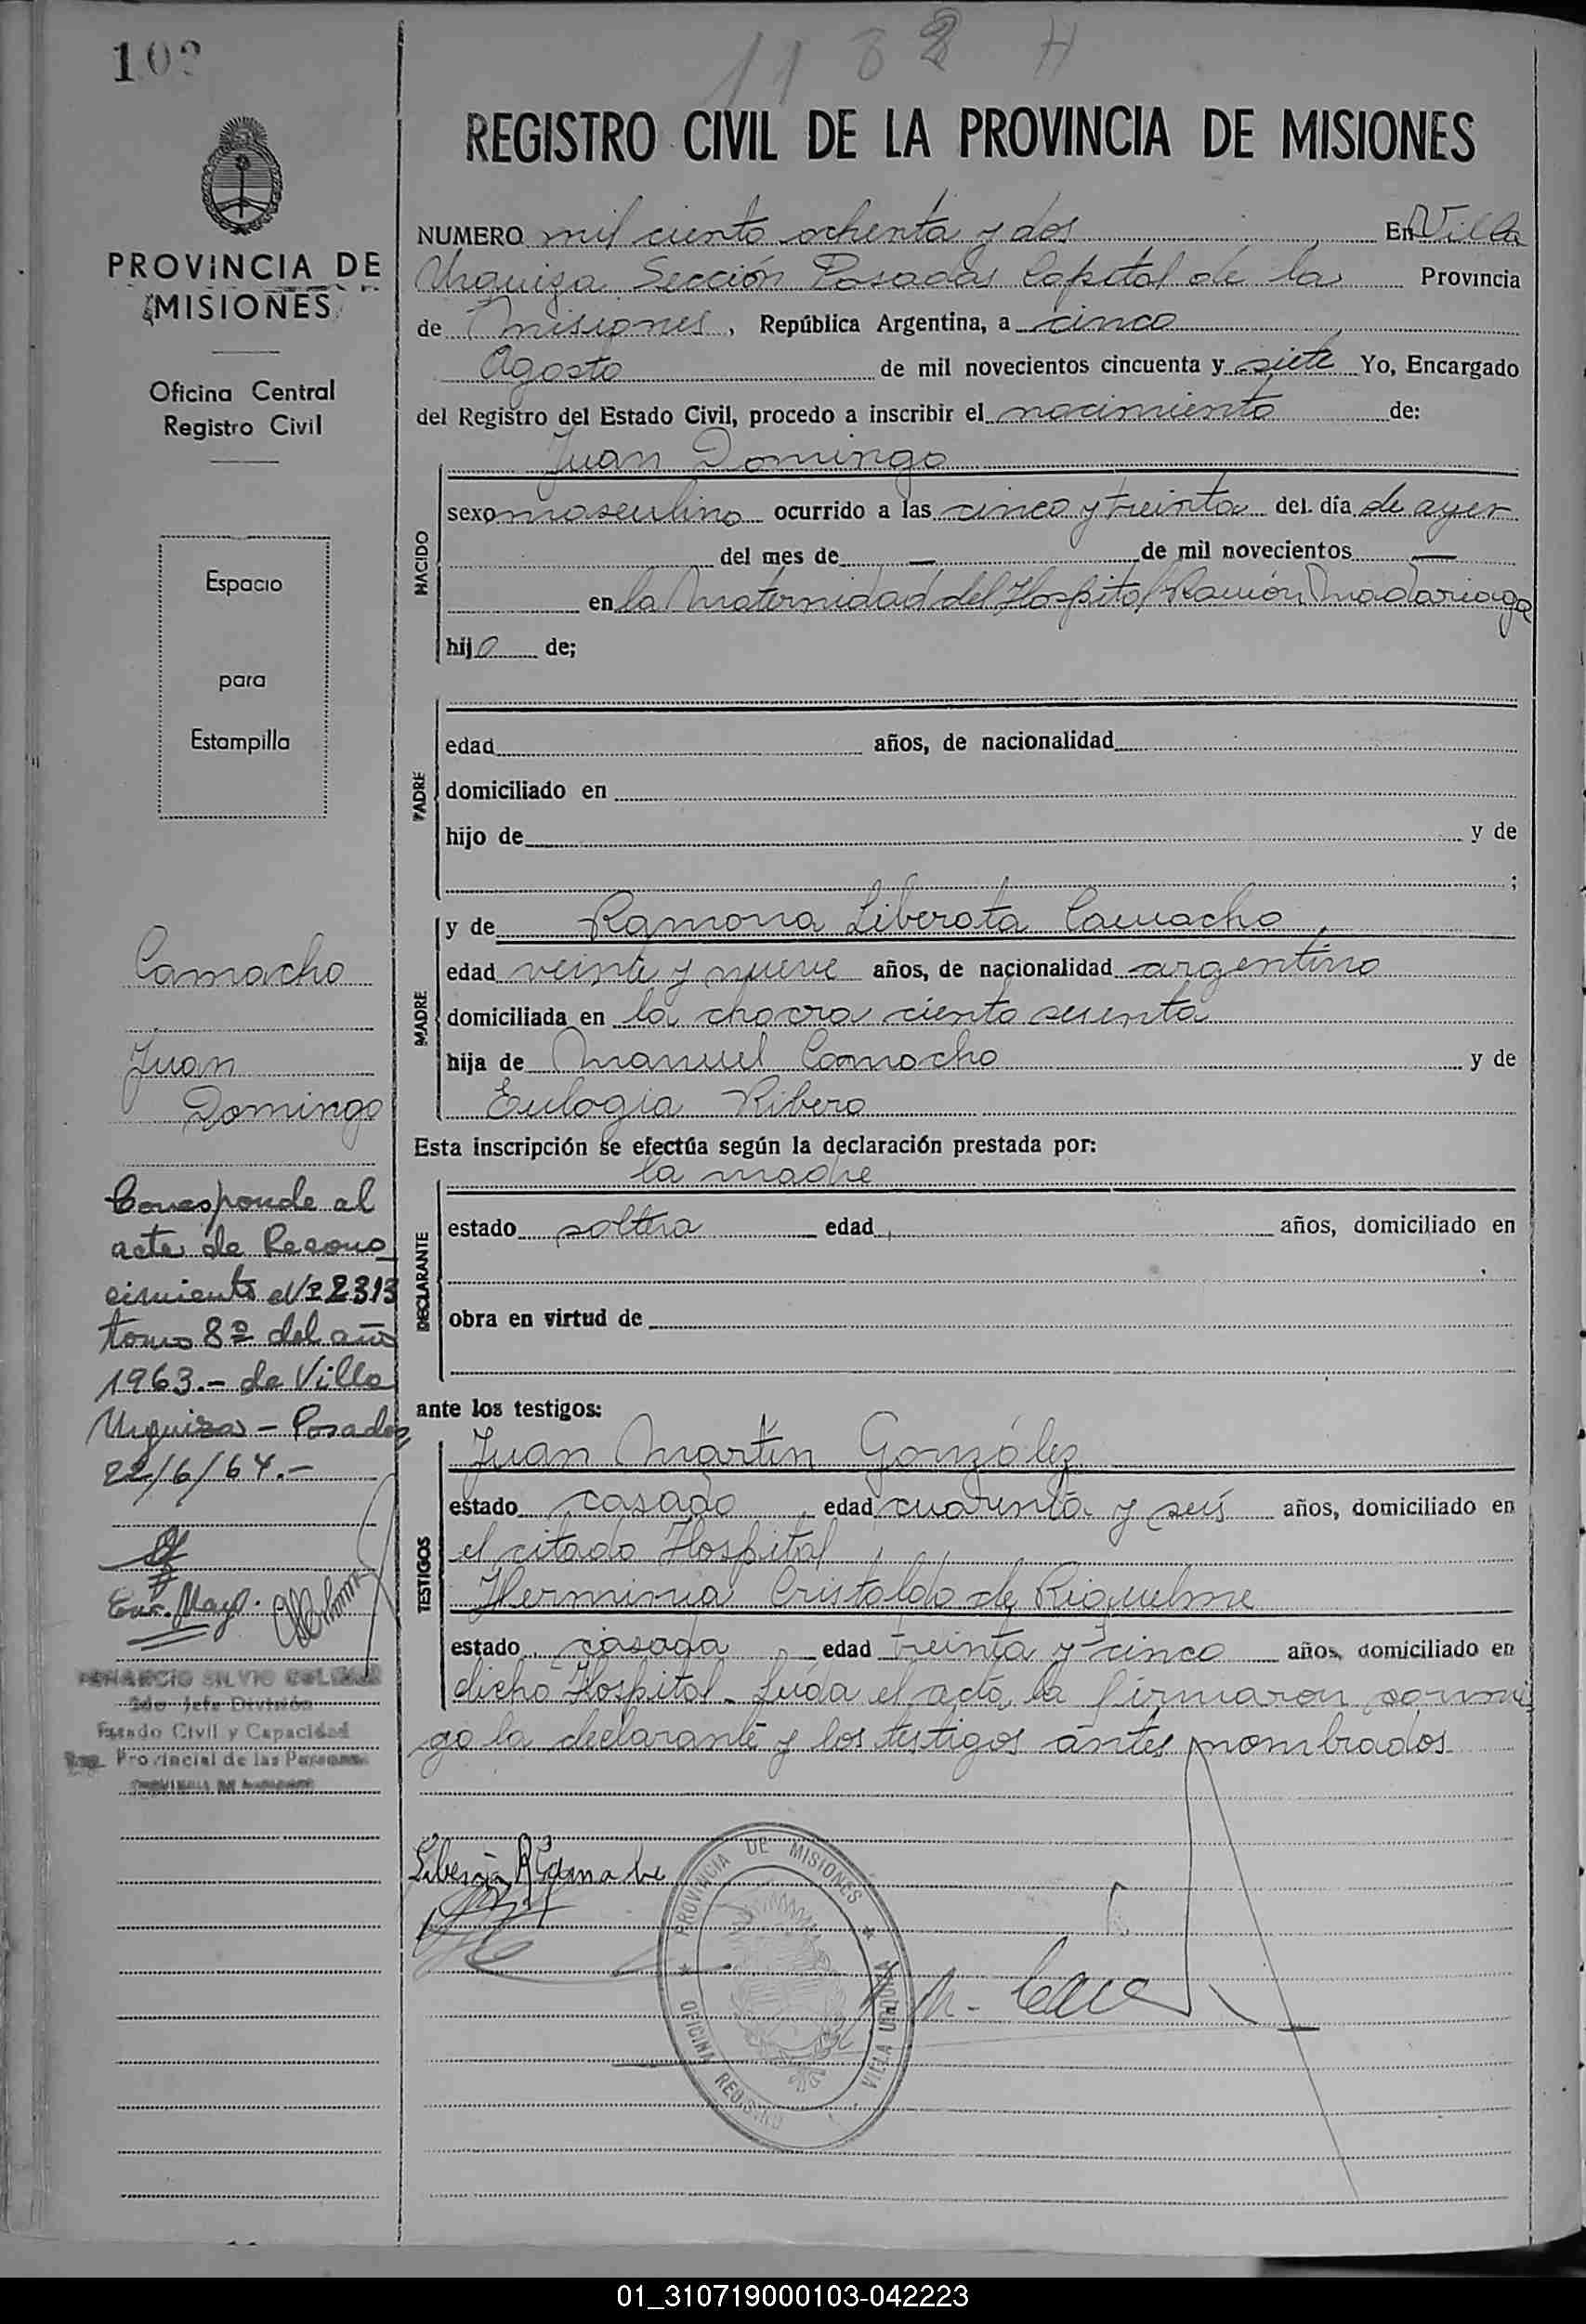 1182 H
REGISTRO CIVIL DE LA PROVINCIA DE MISIONES
PROVINCIA DE
MISIONES
Oficina Central
Registro Civil
Espacio
para
Estampilla
Camacho
Juan
Domingo
Corresponde al
acta de Recono
cimiento Nº 2313
tomo 8º del año
1963.- de Villa
Urquiza - Posadas
22/6/64.-
Enc. Mayo.
2do Jefe División
Estado Civil y Capacidad
Reg. Provincial de las Personas
PROVINCIA DE MISIONES
NUMERO mil ciento ochenta y dos En Villa
Urquiza Sección Posadas Capital de la Provincia
de Misiones, República Argentina, a cinco
Agosto de mil novecientos cincuenta y siete Yo, Encargado
del Registro del Estado Civil, procedo a inscribir el nacimiento de:
NACIDO
Juan Domingo
sexo masculino ocurrido a las cinco y treinta del día de ayer
del mes de — de mil novecientos —
en la Maternidad del Hospital Ramón Madariaga
hijo de;
PADRE
edad años, de nacionalidad
domiciliado en
hijo de y de
;
MADRE
y de Ramona Liberata Camacho
edad veinte y nueve años, de nacionalidad argentina
domiciliada en la chacra ciento sesenta
hija de Manuel Camacho y de
Eulogia Ribero
Esta inscripción se efectúa según la declaración prestada por:
DECLARANTE
la madre
estado soltera edad años, domiciliado en
obra en virtud de
ante los testigos:
TESTIGOS
Juan Martín González
estado casado edad cuarenta y seis años, domiciliado en
el citado Hospital
Herminia Cristaldo de Riquelme
estado casada edad treinta y cinco años, domiciliado en
dicho Hospital. Leída el acta la firmaron conmi
go la declarante y los testigos antes nombrados
PROVINCIA DE MISIONES
OFICINA REGISTRO
VILLA URQUIZA
01_310719000103-042223